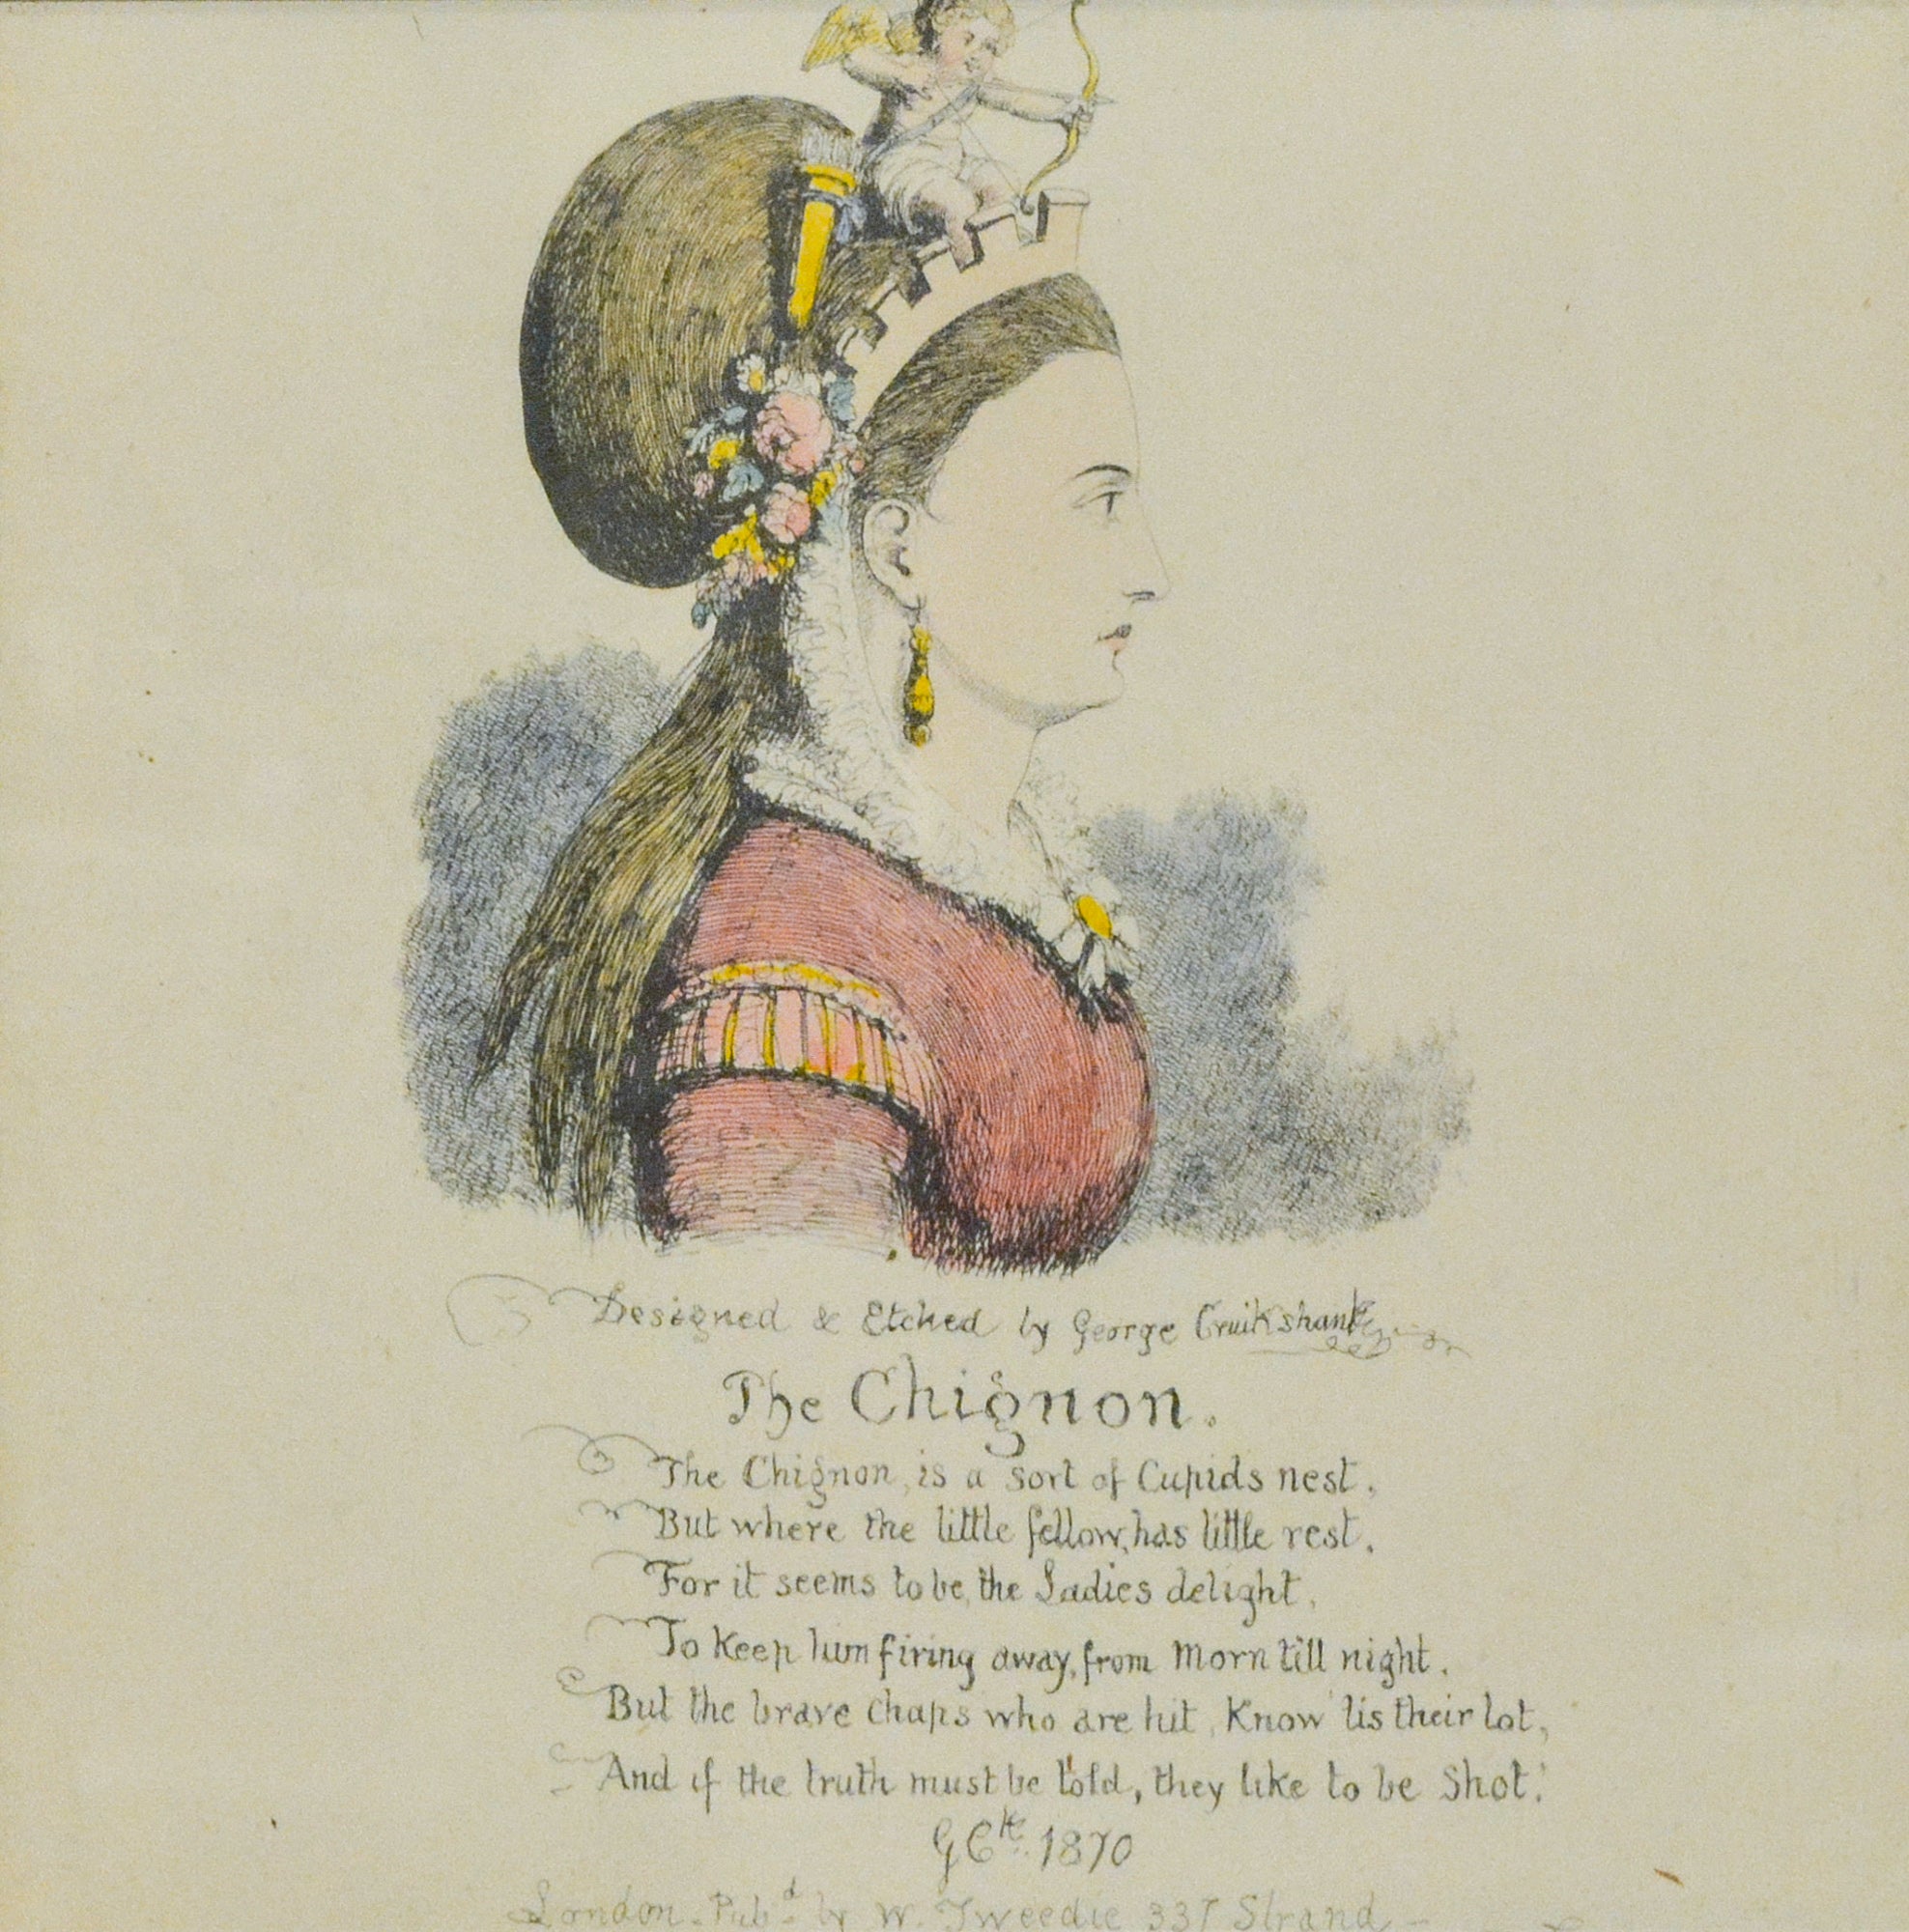 Designed & Etched by George Cruikshank
The Chignon.
The Chignon, is a sort of Cupids nest,
But where the little fellow, has little rest.
For it seems to be, the Ladies delight,
To Keep him firing away, from Morn till night.
But the brave Chaps who are hit, Know 'tis their lot,
And if the truth must be told, they like to be Shot!
GCk. 1870
London. Pubd. by W. Tweedie 337 Strand